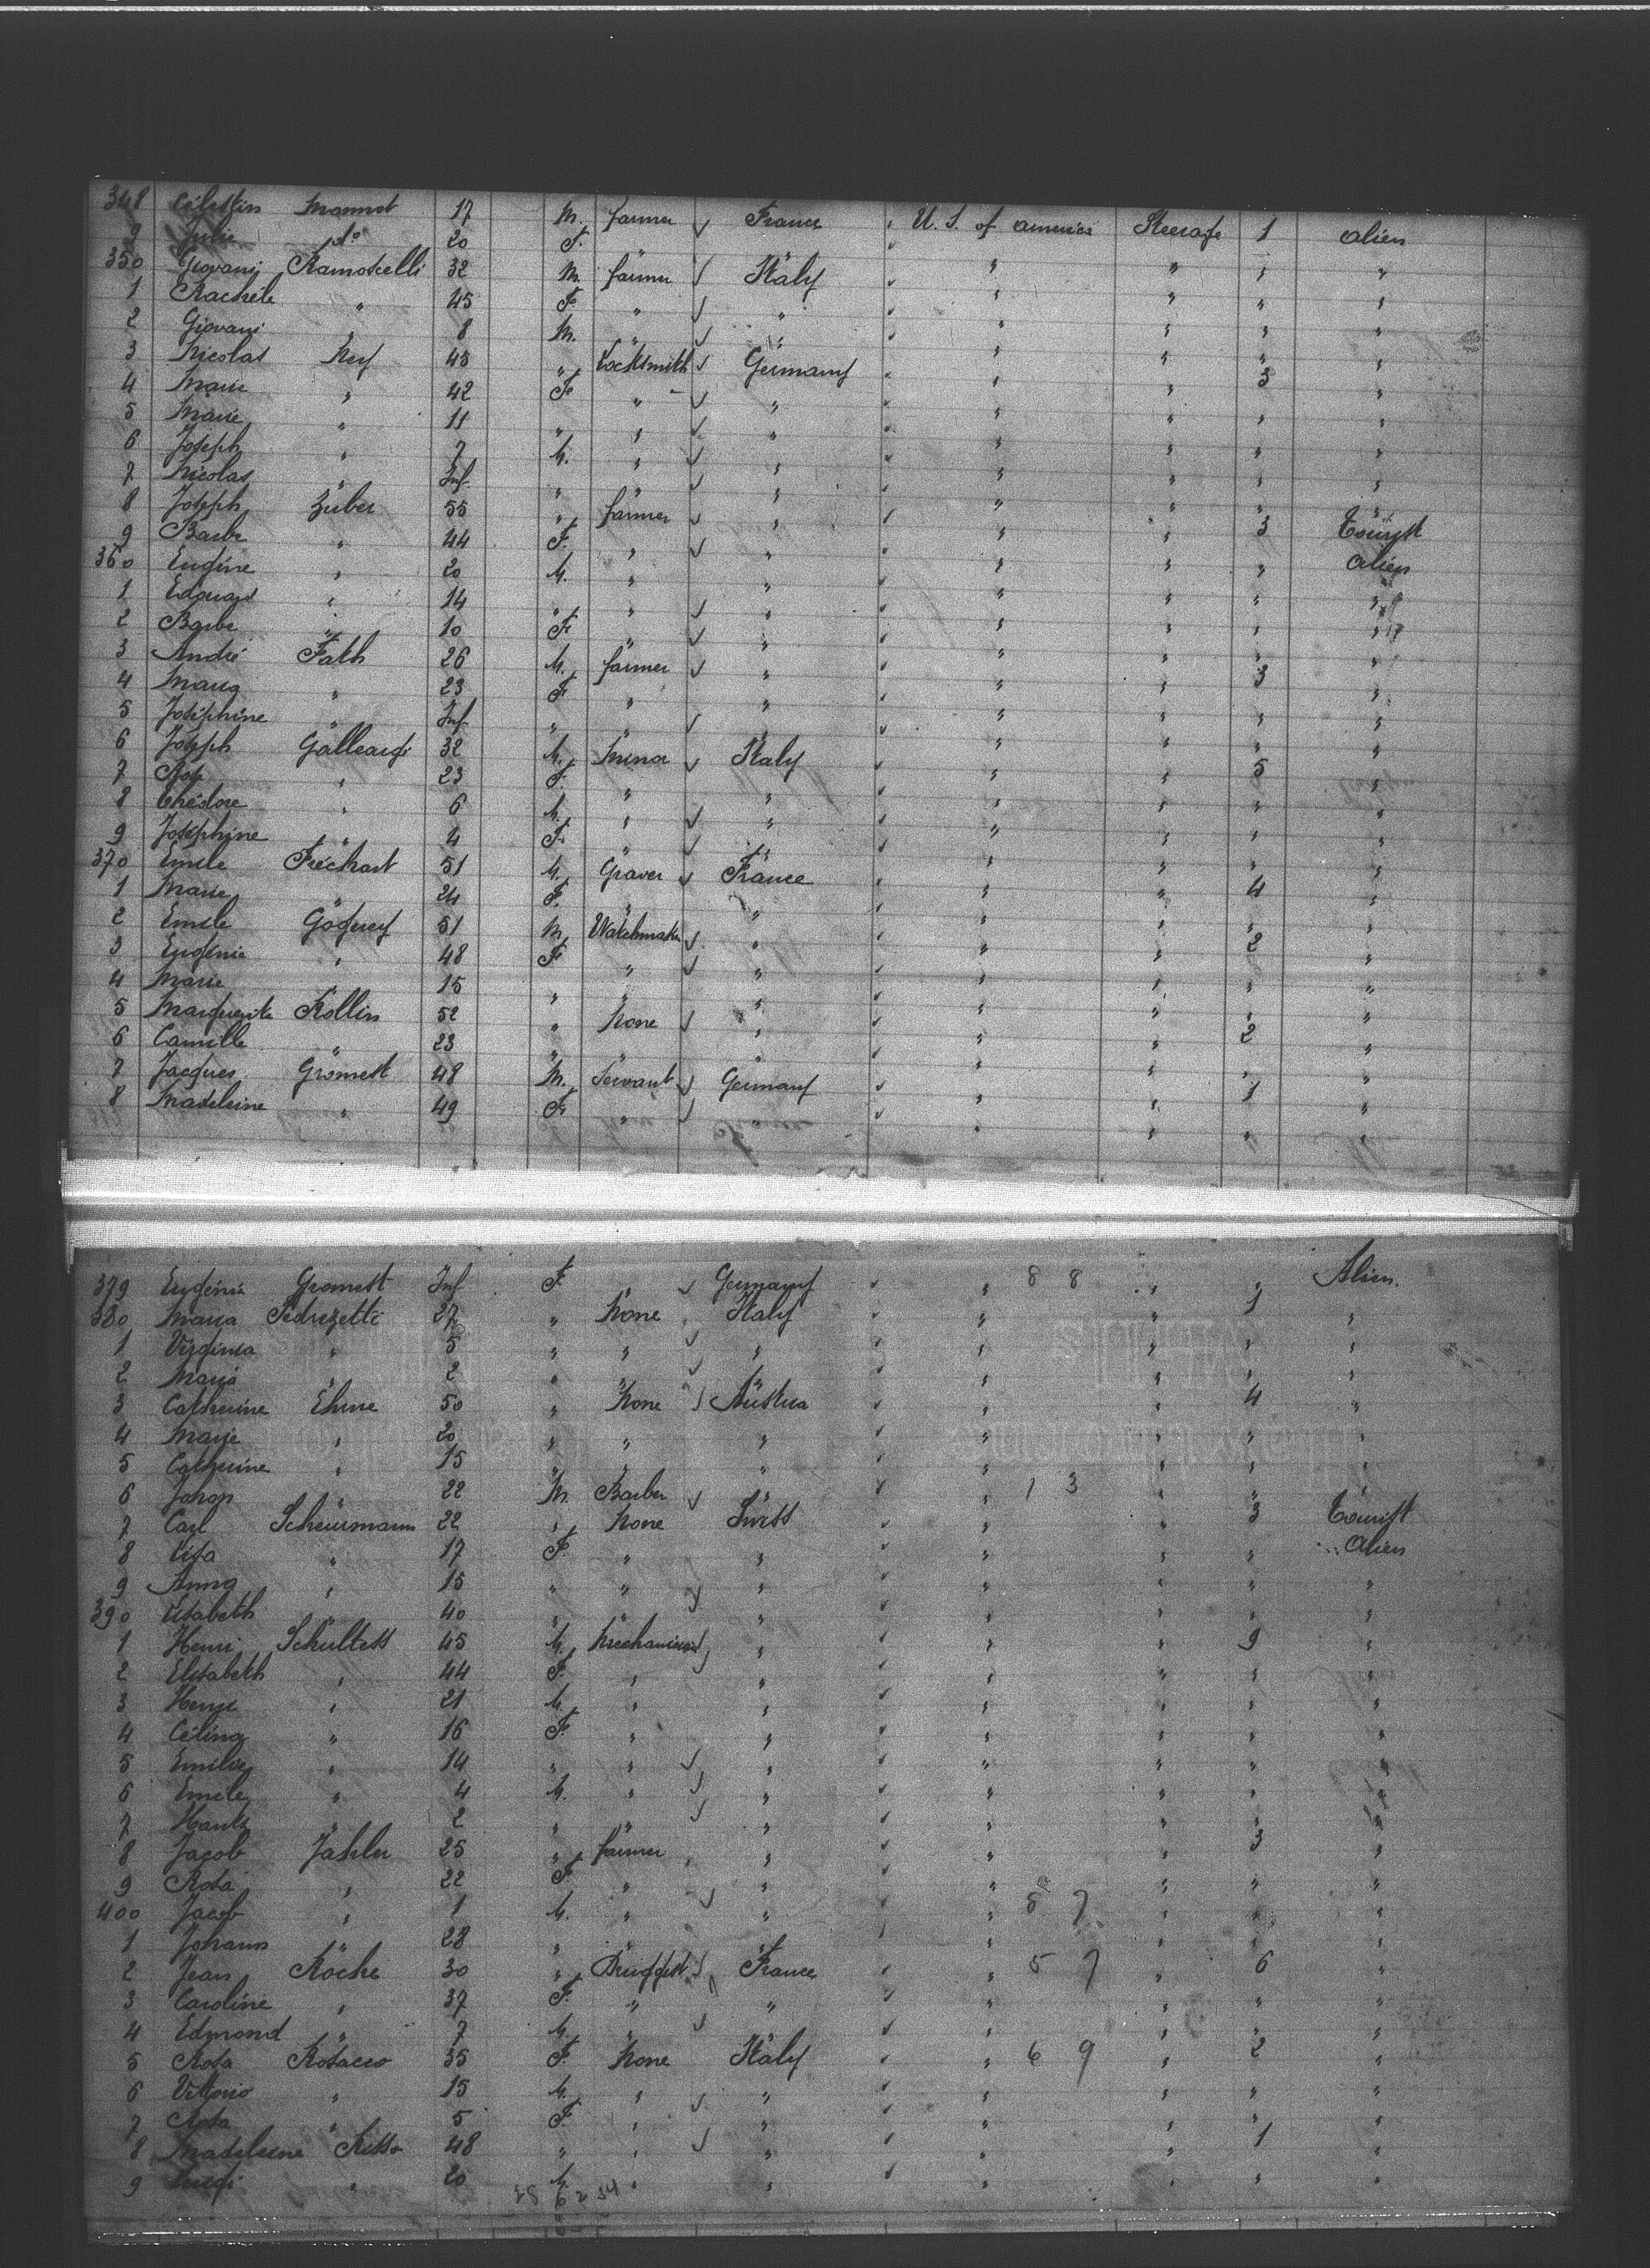 348 Célestin Monnot 17 M. farmer France U. S. of america Steerage 1 alien
9 Julie do 20 F. " " " "
350 Giovani Ramoscelli 32 M. farmer Italy " " " "
1 Rachele " 45 F. " " " " " "
2 Giovani " 8 M. " " " " " "
3 Nicolas Rey 45 " Locksmith Germany " " 3 "
4 Marie " 42 F " " " " " "
5 Marie " 11 " " " " " " "
6 Joseph " 7 M. " " " " " "
7 Nicolas " Inf. " " " " " " "
8 Joseph Zuber 55 " farmer " " " 3 Tourist
9 Barbe " 44 F. " " " " " alien
360 Eugène " 20 M. " " " " " "
1 Edouard " 14 " " " " " " "
2 Barbe " 10 F. " " " " " "
3 André Fath 26 M. farmer " " " 3 "
4 Maria " 23 F. " " " " " "
5 Joséphine " Inf. " " " " " " "
6 Joseph 32 M. Italy " " 5 "
7 " 23 F. " " " " " "
8 " 6 M. " " " " " "
9 Joséphine " 4 F. " " " " " "
370 Emile Fréchart 51 M. Graver France " " 4 "
1 Marie " 24 F. " " " " " "
2 Emile Godfrey 51 M. Watchmaker " " " 2 "
3 Eugénie " 48 F. " " " " " "
4 Marie " 15 " " " " " " "
5 Marguerite Rollin 52 " None " " " 2 "
6 Camille " 23 " " " " " " "
7 Jacques Gromest 48 M. Servant Germany " " 1 "
8 Madeleine " 49 F. " " " " " "
379 Eugénie Gromest Inf F. " Germany " 8 8 " " Alien.
380 Maria Pedrizetti 27 " None Italy " " 1 "
1 Virginia " 5 " " " " " " "
2 Maria " 2 " " " " " " "
3 Catherine Ehme 50 " None Austria " " 4 "
4 Marie " 20 " " " " " " "
5 Catherine " 15 " " " " " " "
6 Johan " 22 M. Barber " " 1 3 " "
7 Carl Scheurmann 22 " None Swiss " " 3 Tourist
8 Lisa " 17 F. " " " " " Alien
9 Anna " 15 " " " " " " "
390 Elisabeth " 40 " " " " " " "
1 Henri Schultess 45 M. Mechanician " " " 9 "
2 Elisabeth " 44 F. " " " " " "
3 Henri " 21 M. " " " " " "
4 Célina " 16 F. " " " " " "
5 Emilie " 14 " " " " " " "
6 Emile " 4 M. " " " " " "
7 " 2 " " " " " " "
8 Jacob 25 " farmer " " " 3 "
9 Rosa " 22 F. " " " " " "
400 Jacob " 1 M. " " " 5 7 " " "
1 Johann " 28 " " " " " " "
2 Jean Roche 30 " Druggist France " 5 7 " 6 "
3 Caroline " 37 F. " " " " " "
4 Edmond " 7 M. " " " " " "
5 Rosa Rosacco 35 F. None Italy " 6 9 " 2 "
6 Vittorio " 15 M. " " " " " "
7 Rosa " 5 F. " " " " " "
8 Madeleine 48 " " " " " 1 "
9 Luigi " 20 M. " " " " " "